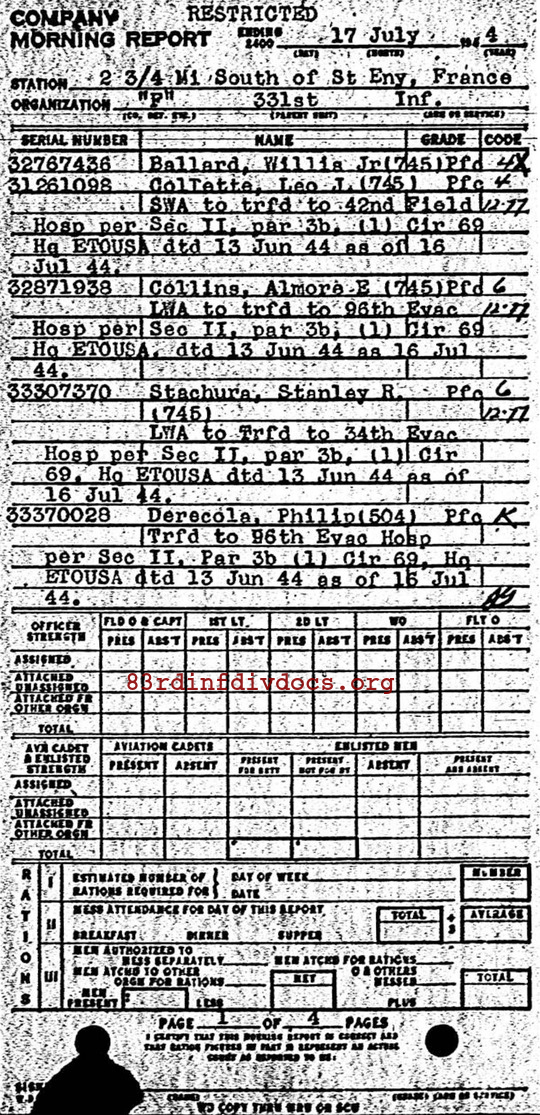 COMPANY RESTRICTED
MORNING REPORT ENDING 2400 17 July 194 4
(DAY) (MONTH) (YEAR)
STATION 2 3/4 Mi South of St Eny, France
ORGANIZATION "F" 331st Inf.
(CO, DET, ETC.) (PARENT UNIT) (ARM OR SERVICE)
SERIAL NUMBER NAME GRADE CODE
32767436 Ballard, Willis Jr(745)Pfc
31261098 Collette, Leo J. (745) Pfc 4
SWA to trfd to 42nd Field
Hosp per Sec II, par 3b, (1) Cir 69
Hq ETOUSA dtd 13 Jun 44 as of 16
Jul 44.
32871938 Collins, Almore E (745)Pfc 6
LWA to trfd to 96th Evac
Hosp per Sec II, par 3b, (1) Cir 69
Hq ETOUSA, dtd 13 Jun 44 as 16 Jul
44.
33307370 Stachura, Stanley R. Pfc 6
(745)
LWA to Trfd to 34th Evac
Hosp per Sec II, par 3b, (1) Cir
69, Hq ETOUSA dtd 13 Jun 44 as of
16 Jul 44.
33370028 Derecola, Philip(504) Pfc K
Trfd to 96th Evac Hosp
per Sec II, Par 3b (1) Cir 69, Hq
ETOUSA dtd 13 Jun 44 as of 16 Jul
44.
OFFICER STRENGTH FLD O & CAPT 1ST LT 2D LT WO FLT O
PRES ABS'T PRES ABS'T PRES ABS'T PRES ABS'T PRES ABS'T
ASSIGNED
ATTACHED UNASSIGNED
83rdinfdivdocs.org
ATTACHED FR OTHER ORGN
TOTAL
AVN CADET & ENLISTED STRENGTH AVIATION CADETS ENLISTED MEN
PRESENT ABSENT PRESENT FOR DUTY PRESENT NOT FOR DY ABSENT PRESENT AND ABSENT
ASSIGNED
ATTACHED UNASSIGNED
ATTACHED FR OTHER ORGN
TOTAL
RATIONS
I ESTIMATED NUMBER OF RATIONS REQUIRED FOR DAY OF WEEK DATE NUMBER
II MESS ATTENDANCE FOR DAY OF THIS REPORT TOTAL ÷ 3 AVERAGE
BREAKFAST DINNER SUPPER
III MEN AUTHORIZED TO MESS SEPARATELY MEN ATCHD FOR RATIONS
MEN ATCHD TO OTHER ORGN FOR RATIONS NET O & OTHERS MESSED TOTAL
MEN PRESENT LESS PLUS
PAGE 1 OF 4 PAGES
I CERTIFY THAT THIS MORNING REPORT IS CORRECT AND
THAT RATION FIGURES IN PART II REPRESENT AN ACTUAL
COUNT AS REPORTED TO ME: